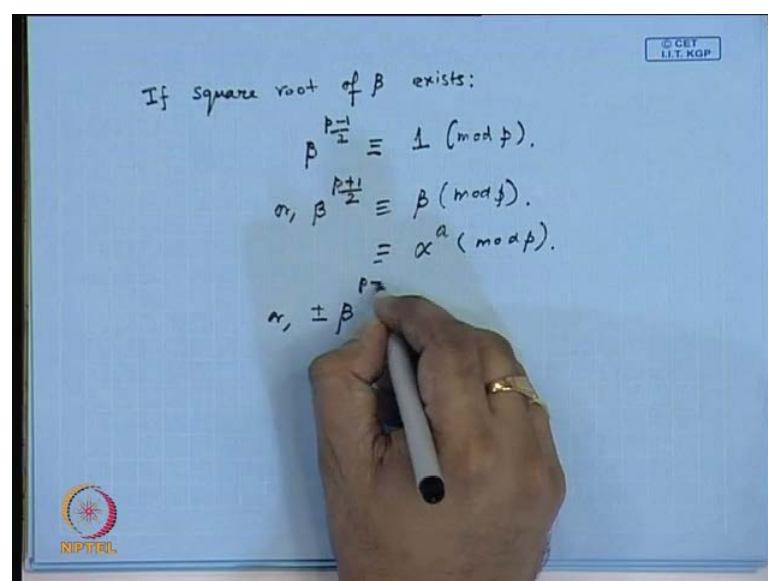 © CET
I.I.T. KGP
If square root of β exists:
β^{\frac{p-1}{2}} ≡ 1 (mod p).
or, β^{\frac{p+1}{2}} ≡ β (mod p).
≡ α^a (mod p).
or, ± β^{p
NPTEL